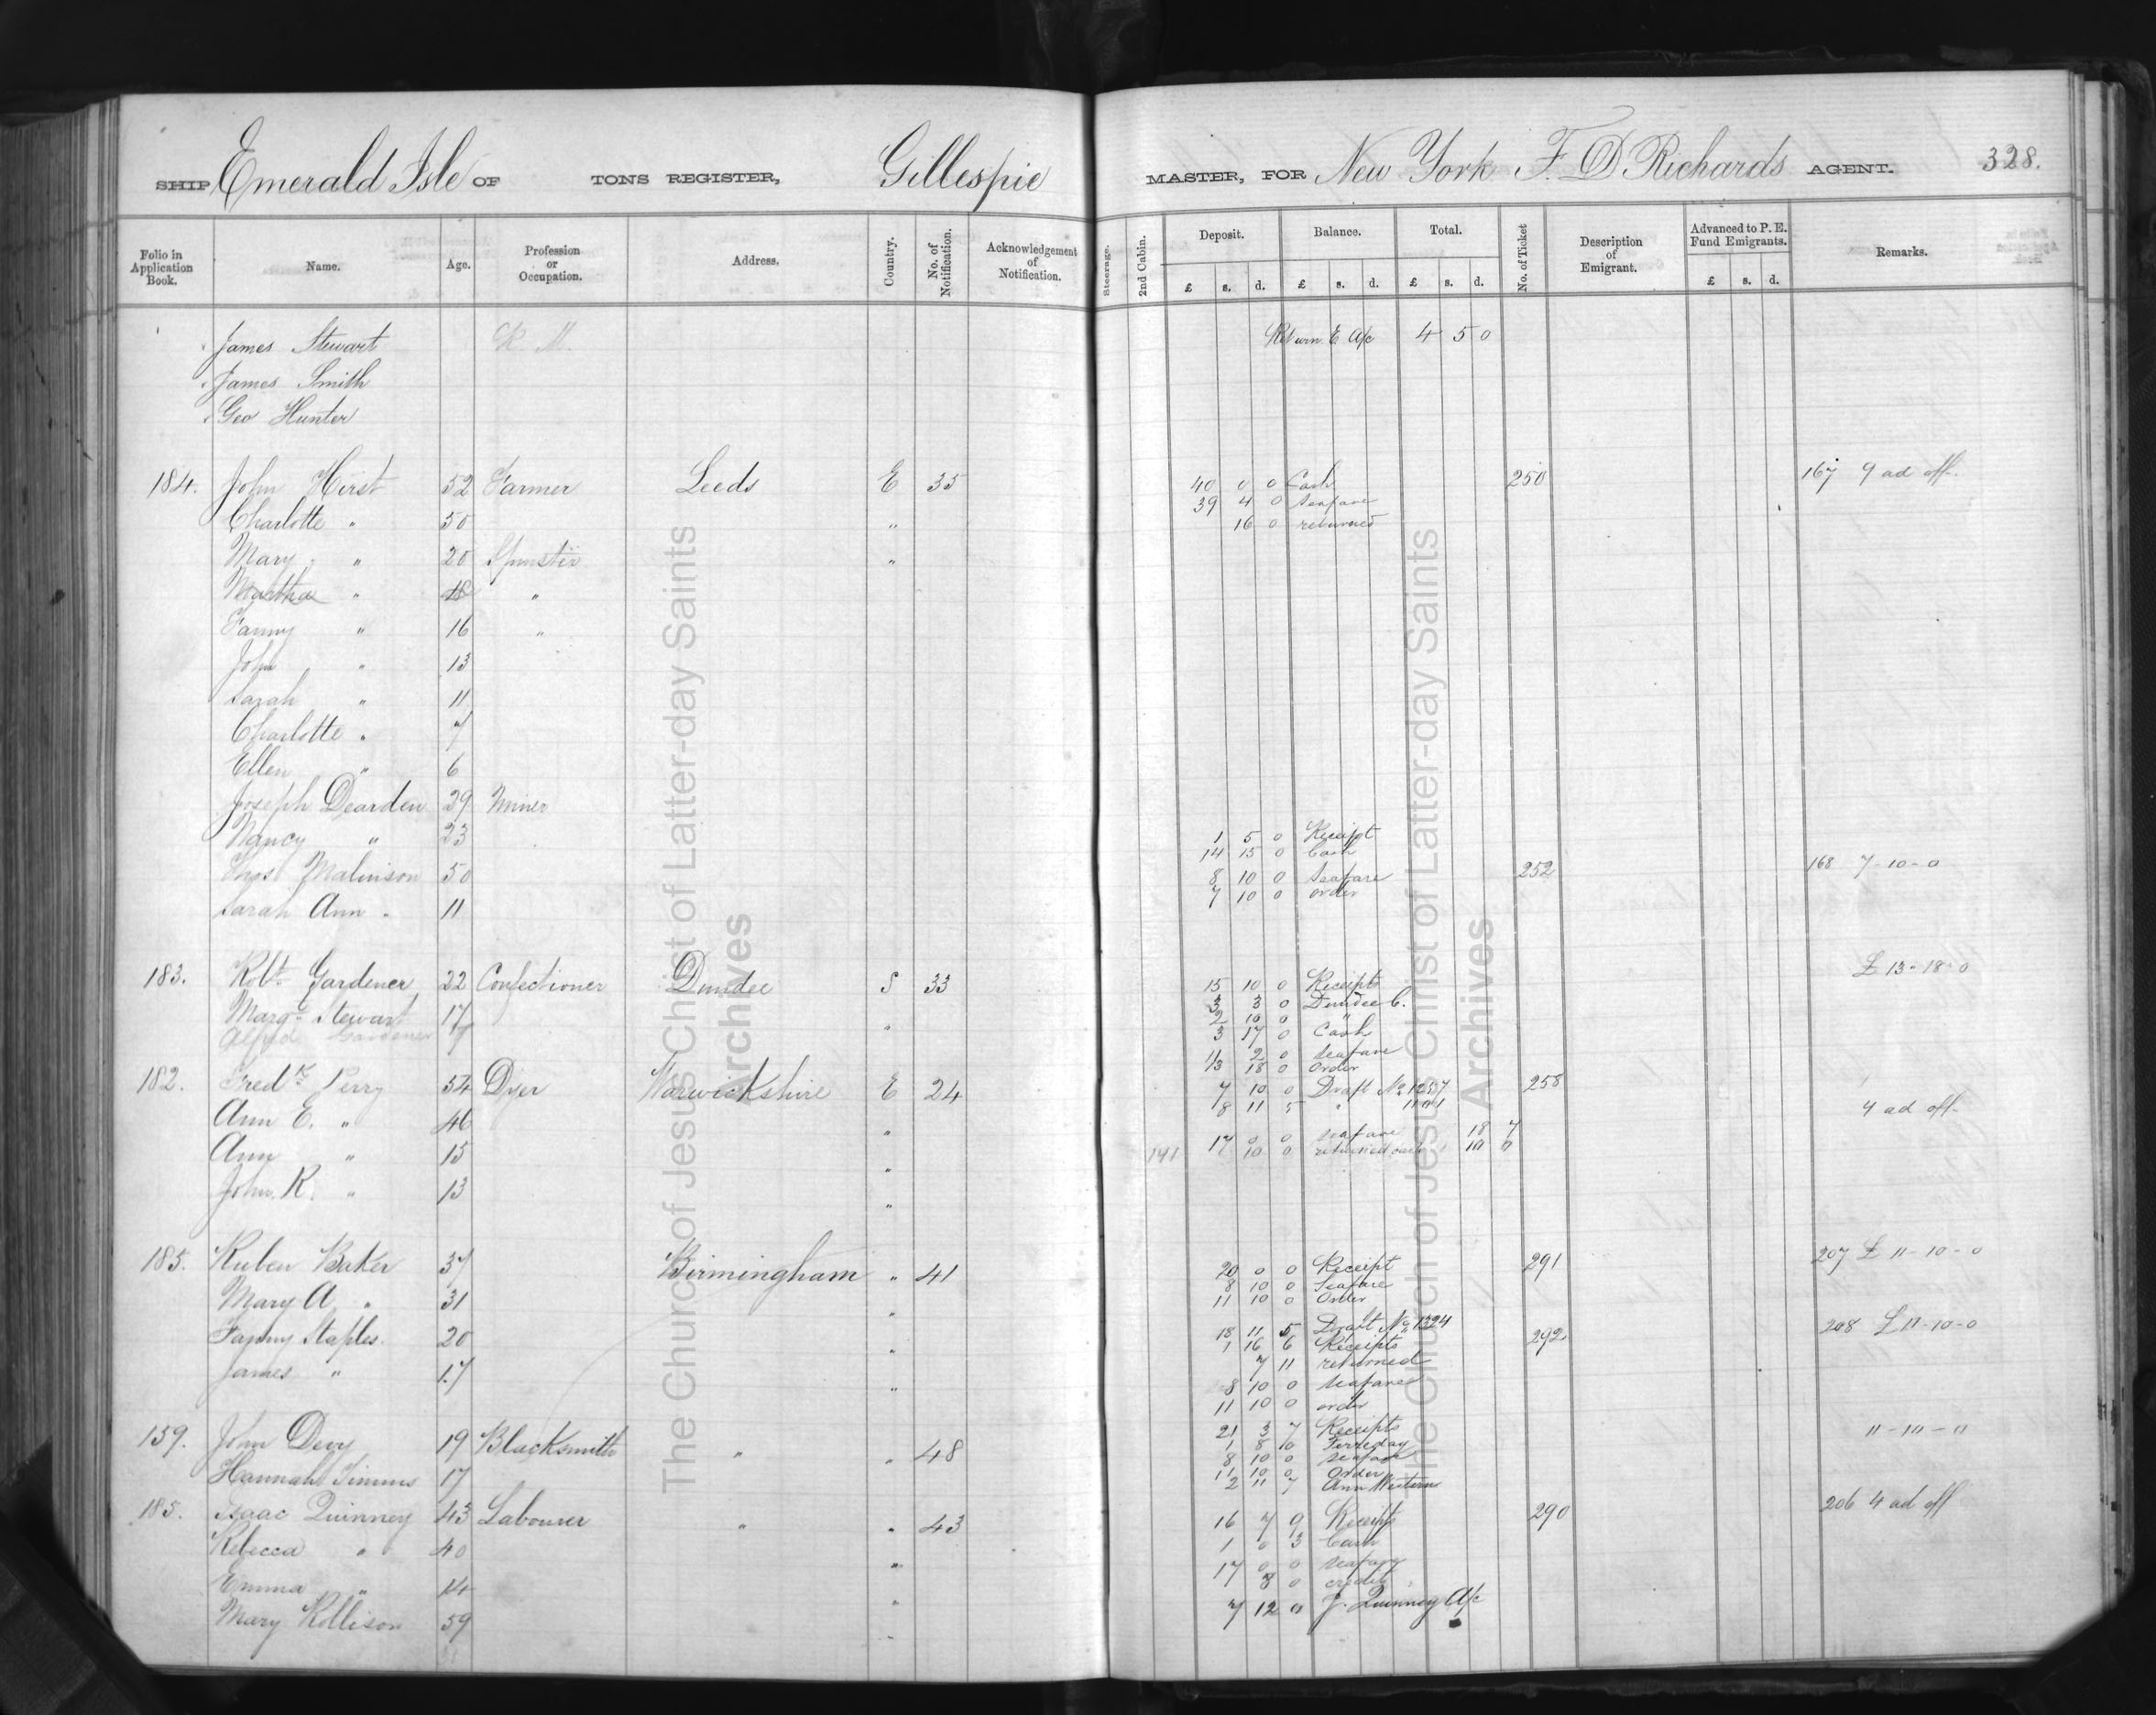 SHIP Emerald Isle OF TONS REGISTER, Gillespie MASTER, FOR New York F. D Richards AGENT. 328.
Folio in Application Book. Name. Age. Profession or Occupation. Address. Country. No. of Notification. Acknowledgement of Notification. Steerage. 2nd Cabin. Deposit. Balance. Total. No. of Ticket Description of Emigrant. Advanced to P. E. Fund Emigrants. Remarks.
£ s. d. £ s. d. £ s. d. £ s. d.
James Stewart R. M. Return E A/c 4 5 0
James Smith
Geo Hunter
184. John Hirst 52 Farmer Leeds E 35 40 0 0 Cash 250 167 9 ad off.
39 4 0 Seafare
Charlotte " 50 " 16 0 returned
Mary " 20 Spinster "
Martha " 18 "
Fanny " 16 "
John " 13
Sarah " 11
Charlotte " 7
Ellen " 6
Joseph Dearden 29 Miner
Nancy " 23 1 5 0 Receipt
14 15 0 Cash
Thos Malinson 50 8 10 0 Seafare 252 168 7-10-0
7 10 0 order
Sarah Ann " 11
£ 13-18-0
183. Robt Gardener 22 Confectioner Dundee S 33 15 10 0 Receipts
3 3 0 Dundee C.
Margt Stewart 17 " 2 10 0 "
Alfred Gardener 3 17 0 Cash
2 0 Seafare
13 18 0 Order
182. Fredk Perry 54 Dyer Warwickshire E 24 7 10 0 Draft No 258
8 11 5 " 4 ad off.
Ann E. " 46 " 17 0 0 Seafare 18 7
Ann " 15 " 191 10 0 returned cash 10 0
John R. " 13 "
185. Ruben Baker 37 Birmingham " 41 20 0 0 Receipt 291 207 £ 11-10-0
8 10 0 Seafare
Mary A " 31 " 11 10 0 Order
Fanny Staples. 20 " 18 11 5 Draft No 1324 292 208 £ 11-10-0
1 16 6 Receipts
7 11 returned
James " 17 " 8 10 0 Seafare
11 10 0 order
159. John Davy 19 Blacksmith " " 48 21 3 7 Receipts 11-10-0
1 8 0 Ferreday
8 10 0 Seafare
Hannah Timms 17 11 10 0 Order
2 11 7 Ann Western
185. Isaac Quinney 43 Labourer " " 43 16 7 9 Receipts 290 206 4 ad off
Rebecca " 40 " 1 0 3 Cash
17 0 0 Seafare
Emma " 14 " 8 0 credit
Mary Rollison 59 " 7 12 0 J. Quinney A/c
The Church of Jesus Christ of Latter-day Saints
Archives
The Church of Jesus Christ of Latter-day Saints
Archives